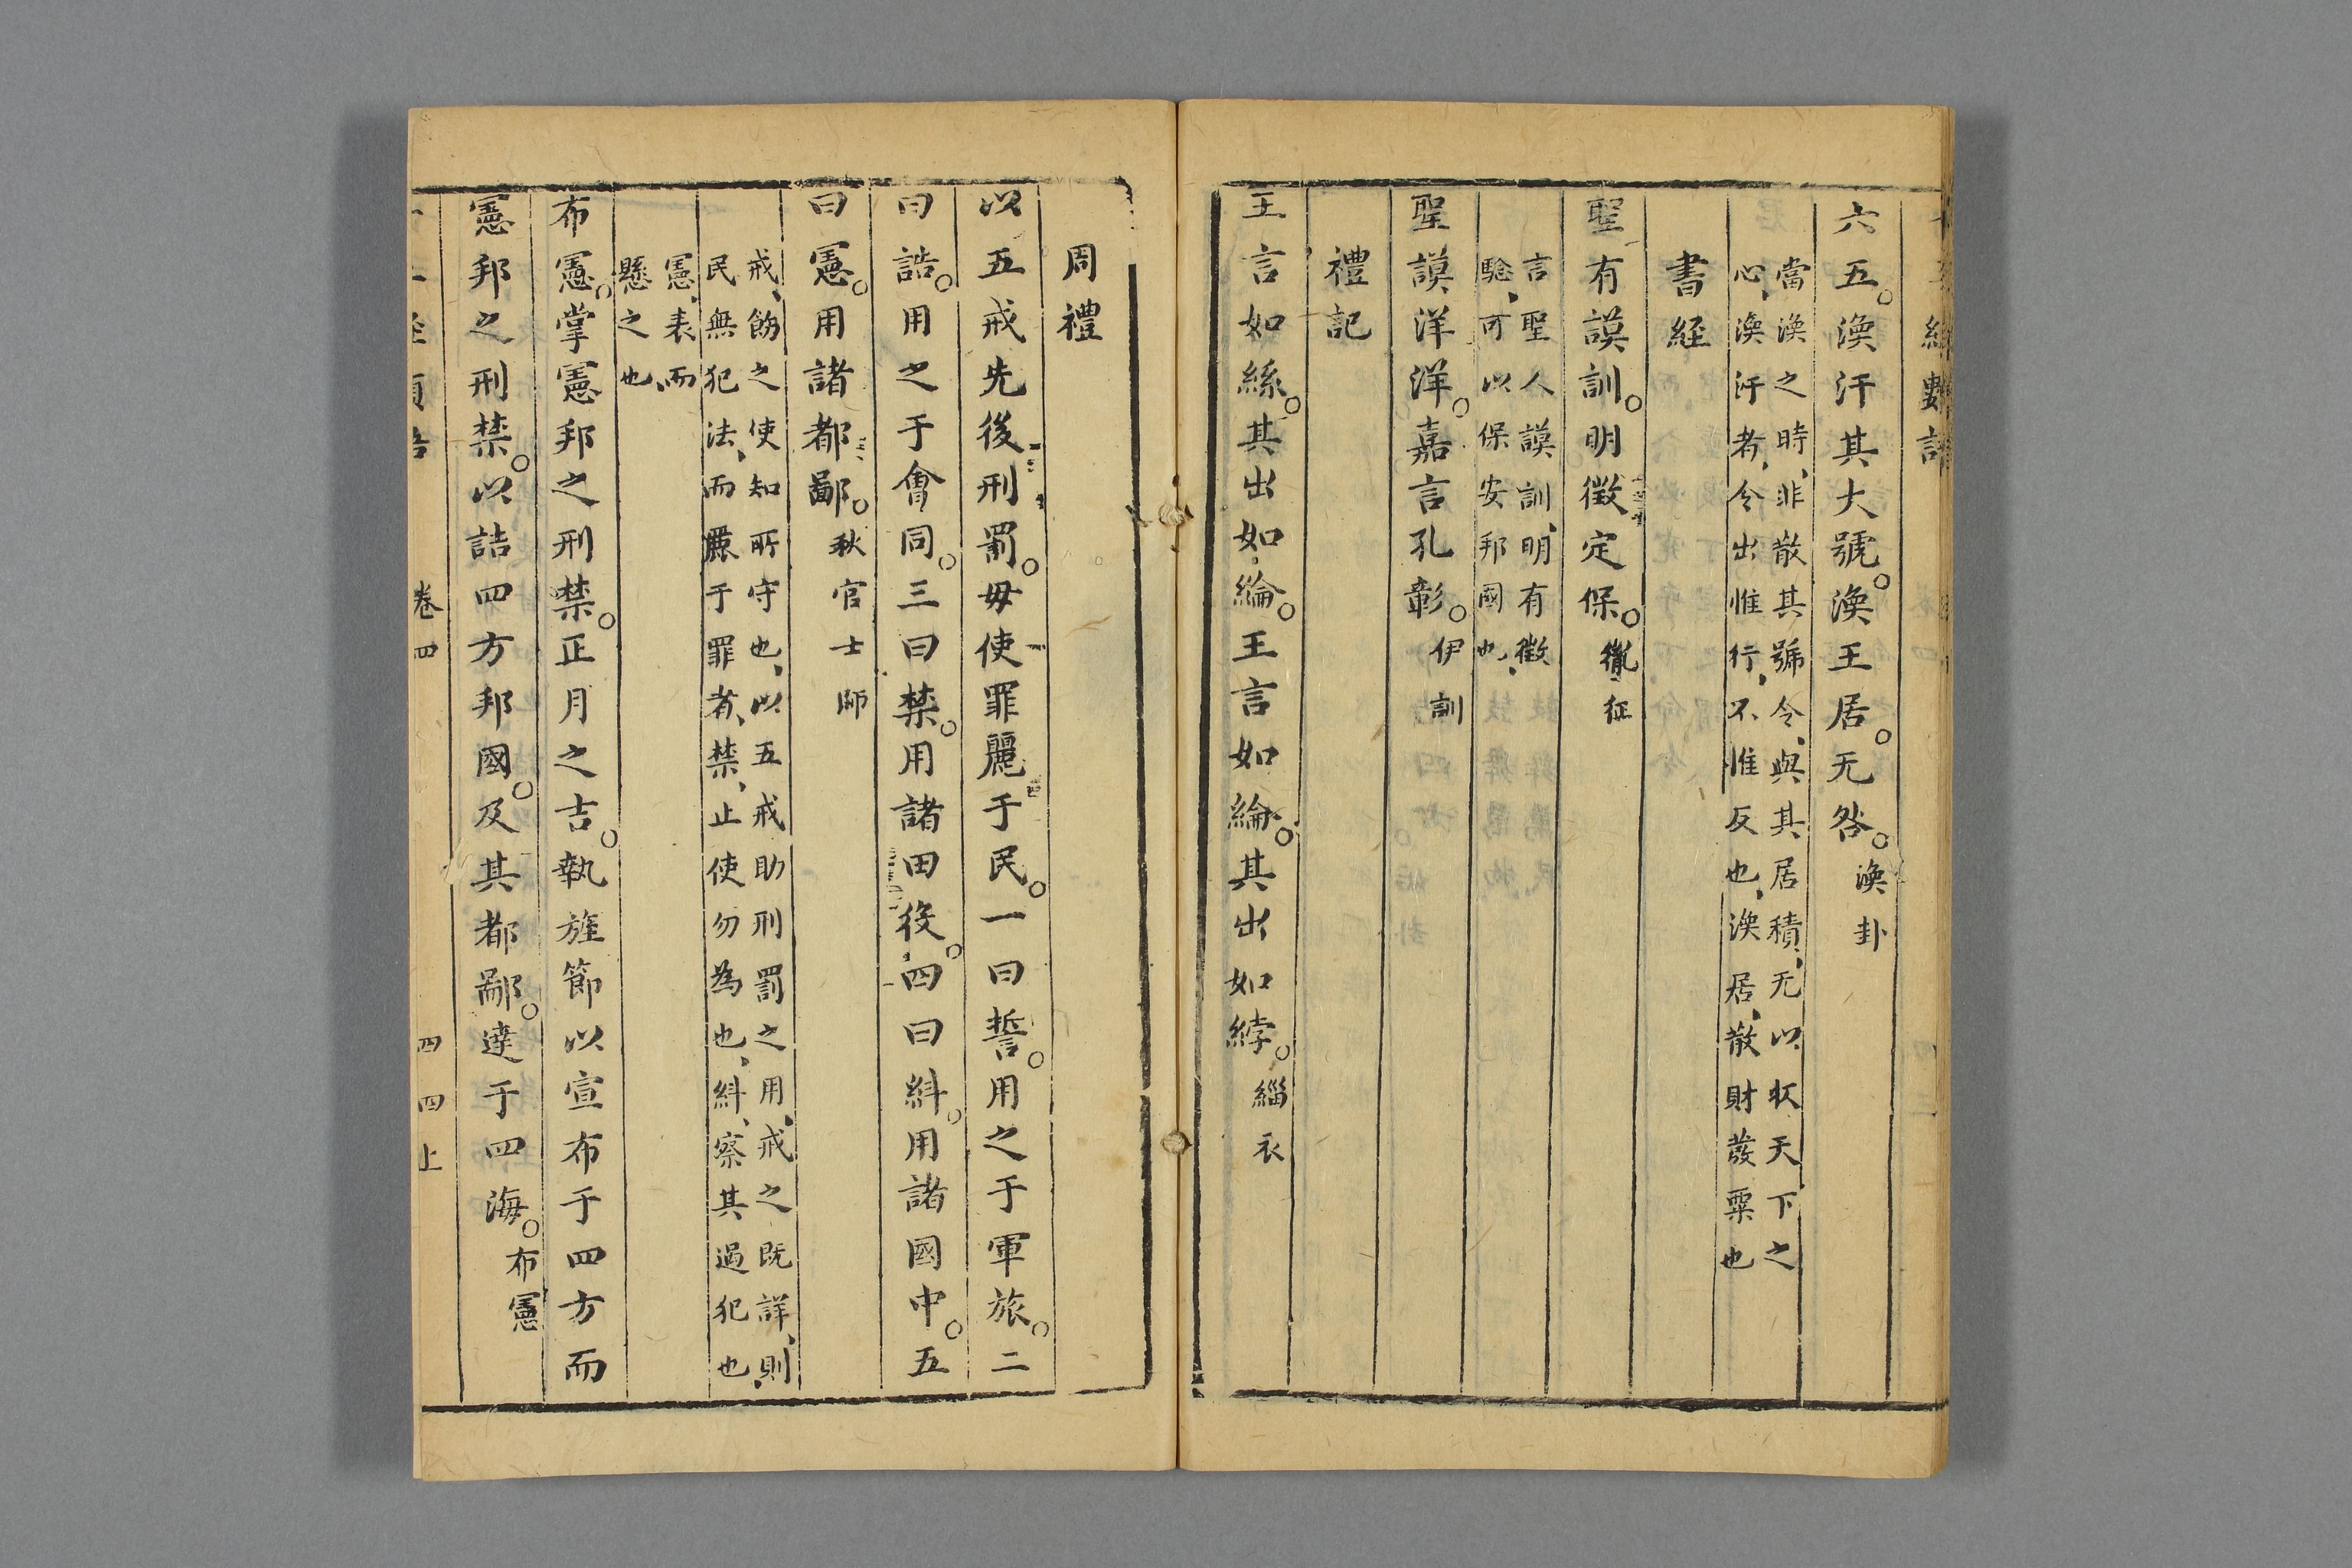 六五。渙汗其大號。渙王居。无咎。渙卦
當渙之時、非散其號令、與其居積、无以收天下之
心、渙汗者、令出惟行、不惟反也、渙居、散財發粟也
書経
聖有謨訓。明徵定保。胤征
言聖人謨訓、明有徵
驗、可以保安邦國也、
聖謨洋洋。嘉言孔彰。伊訓
禮記
王言如絲。其出如綸。王言如綸。其出如綍。緇衣
周禮
以五戒先後刑罰。毋使罪麗于民。一曰誓。用之于軍旅。二
曰誥。用之于會同。三曰禁。用諸田役。四曰糾。用諸國中。五
曰憲。用諸都鄙。秋官士師
戒、飭之使知所守也、以五戒助刑罰之用、戒之既詳、則
民無犯法、而麗于罪者、禁、止使勿為也、糾、察其過犯也、
憲、表而
懸之也、
布憲。掌憲邦之刑禁。正月之吉。執旌節以宣布于四方而
憲邦之刑禁。以詰四方邦國。及其都鄙。達于四海。布憲
卷四 四四上